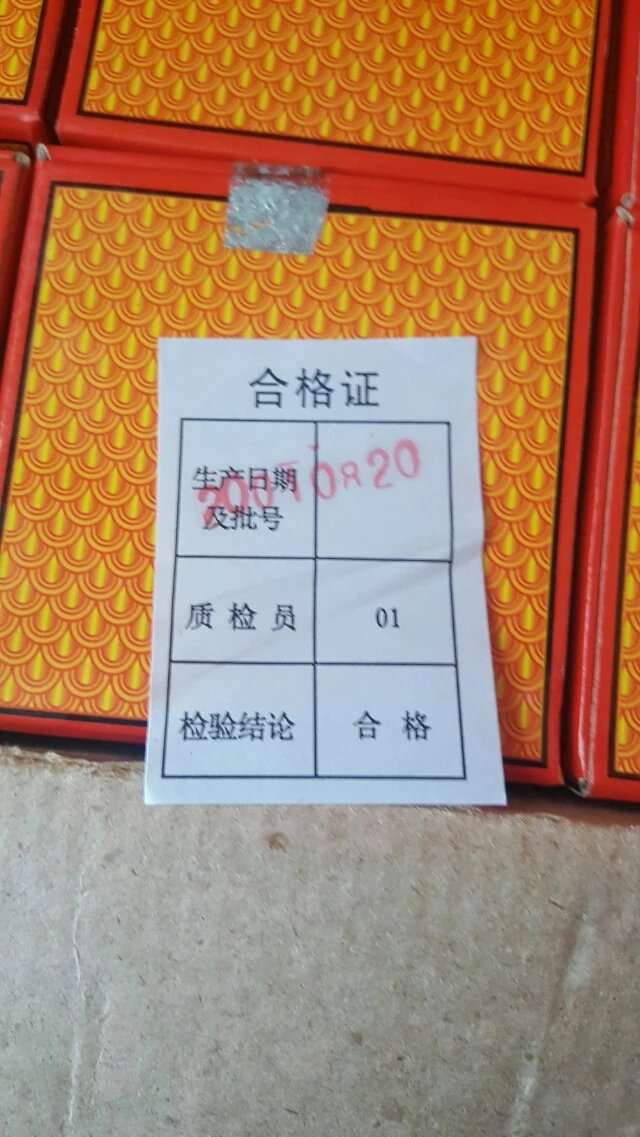 合格证
生产日期
及批号
质检员 01
检验结论 合格